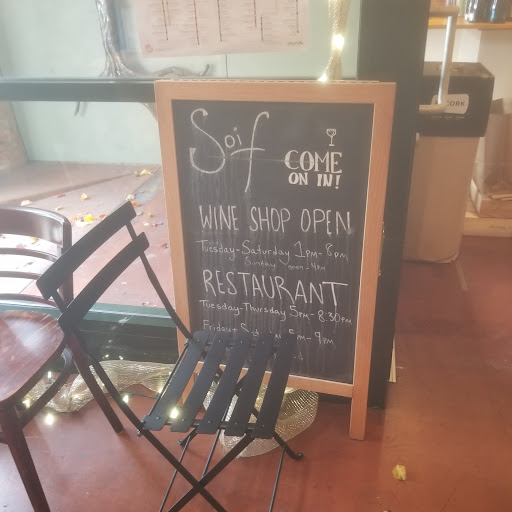 Soif
COME
ON IN!
WINE SHOP OPEN
Tuesday-Saturday 1PM-8PM
Sunday noon-4PM
RESTAURANT
Tuesday-Thursday 5PM-8:30PM
Friday 5PM-9PM
CORK